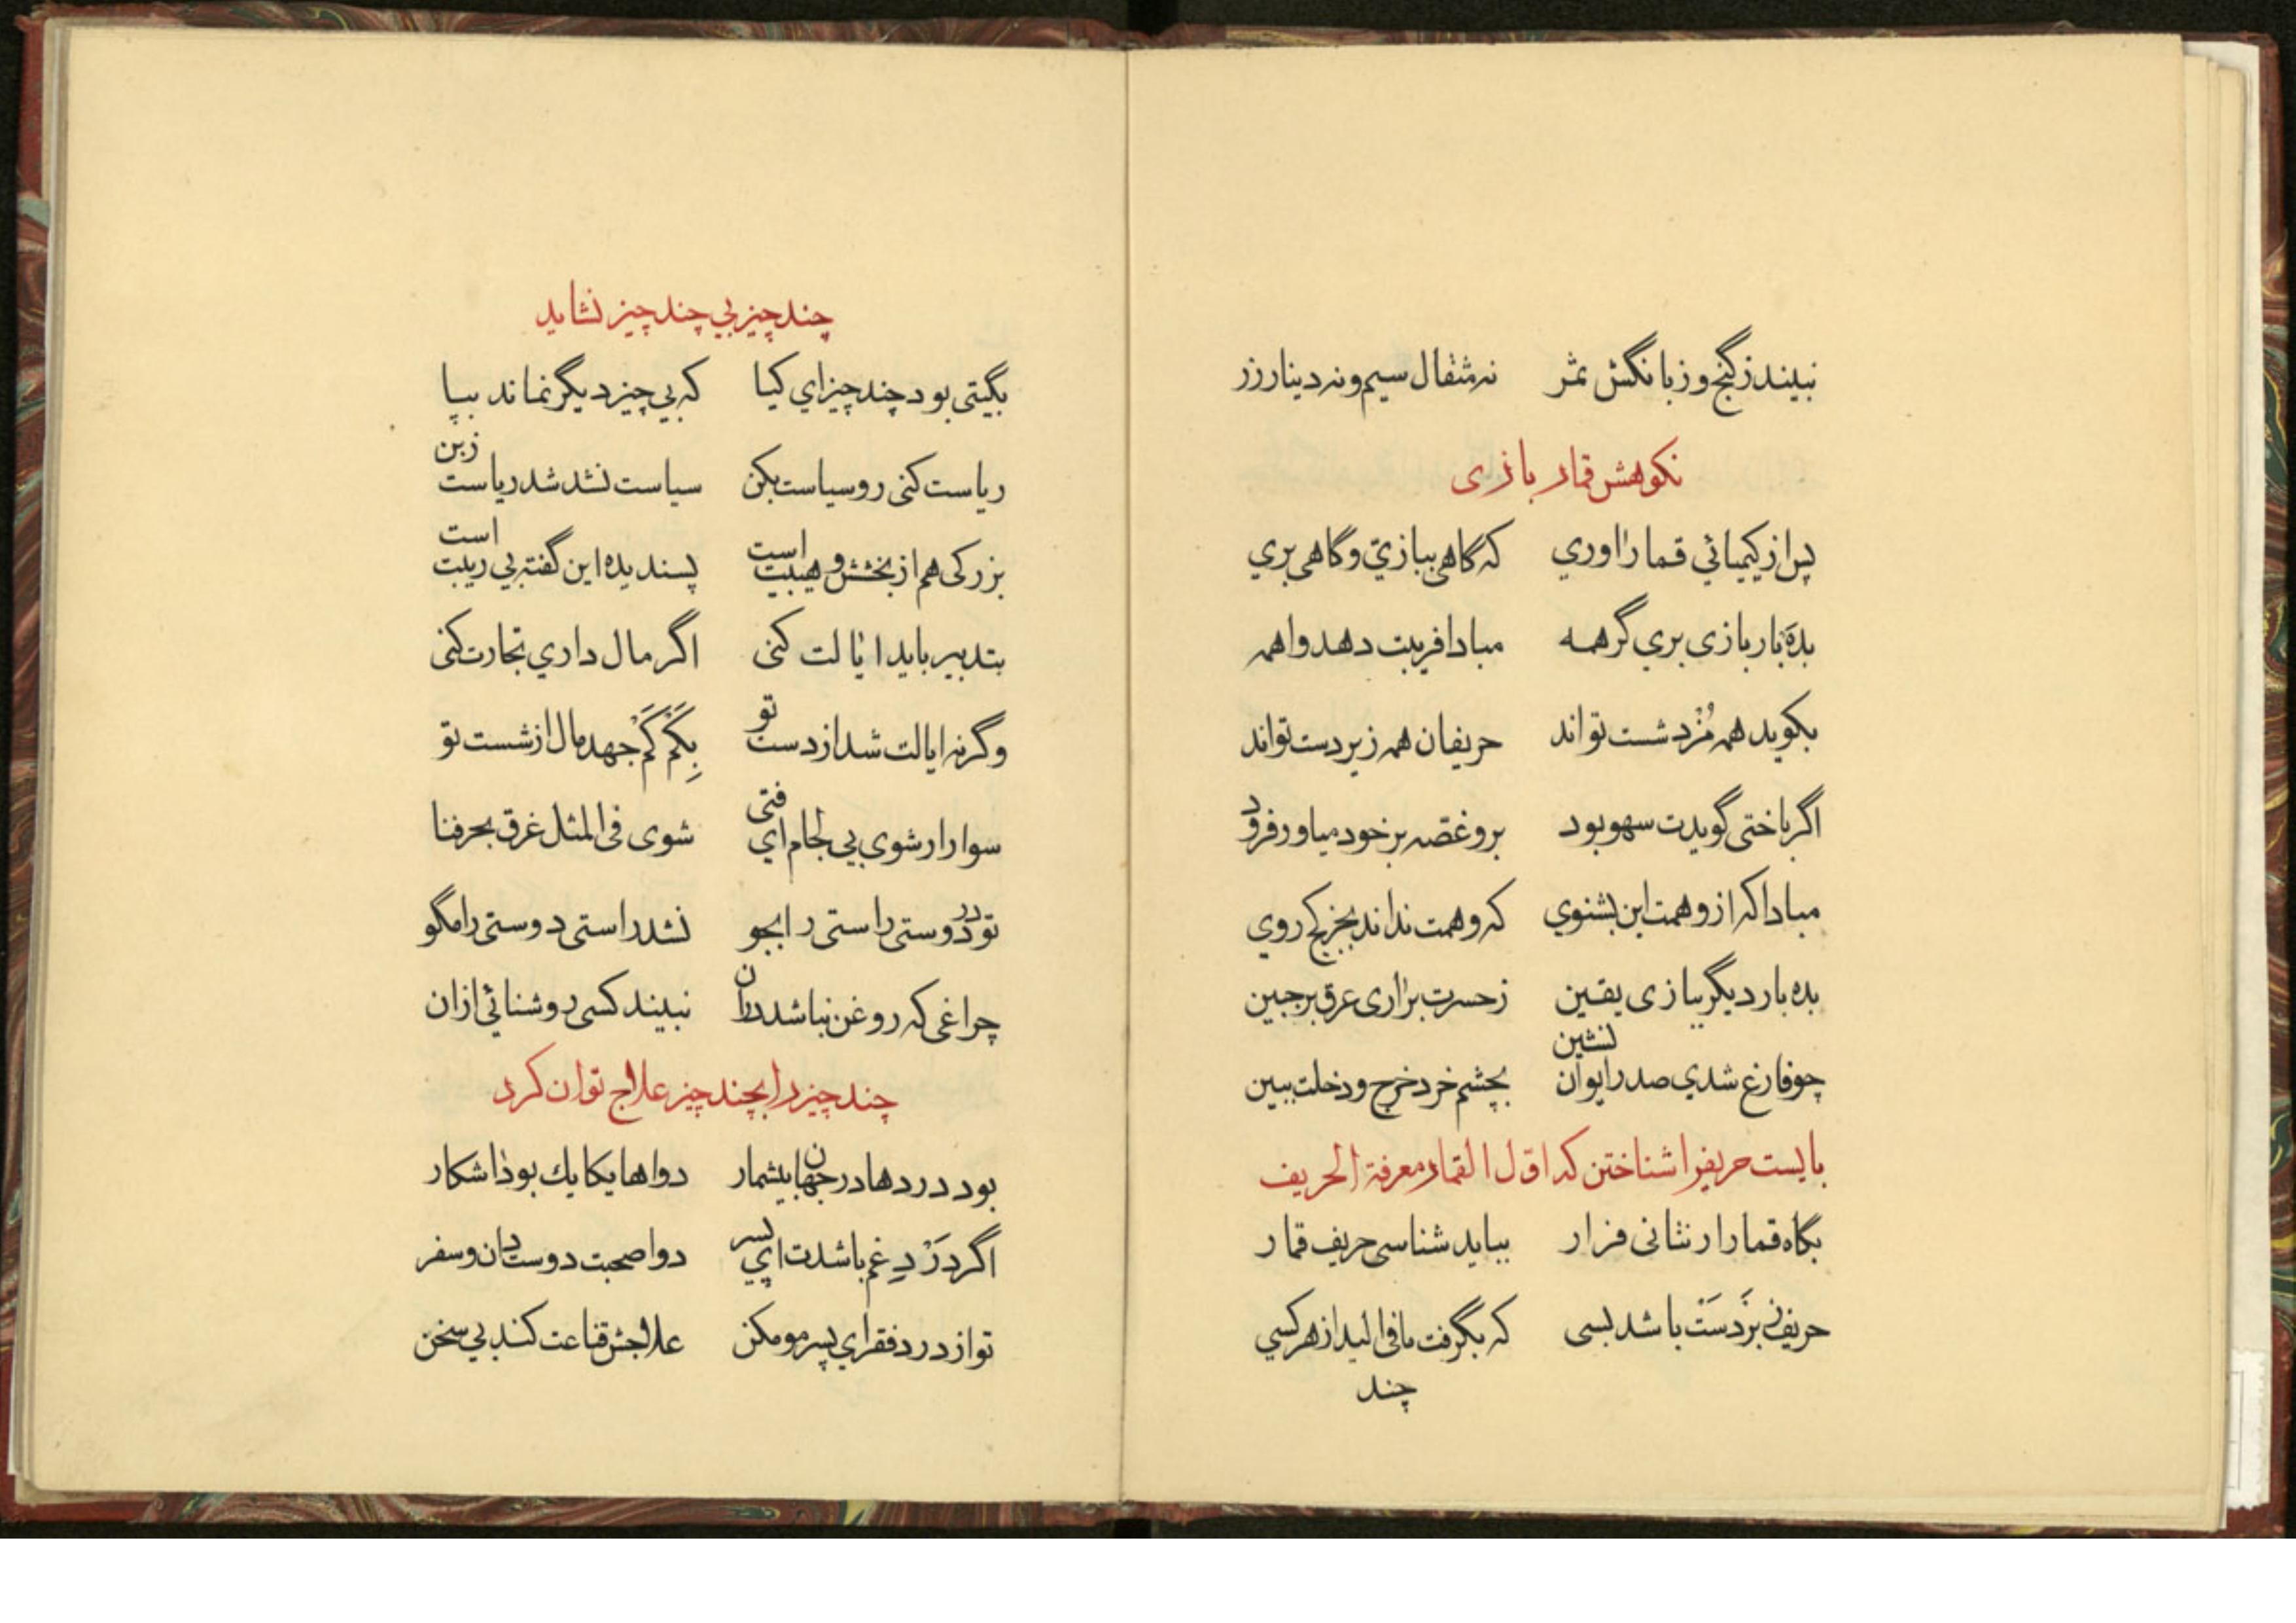 نبیند ز گنج و ز بانگش ثمر نه مثقال سیم و نه دینار زر
نکوهش قمار بازی
پس از کیمیائي قمار اوري که گاهی ببازي و گاهی بري
بده بار بازی بري گر همه مبادا فریبت دهد واهمه
بکوید همه مُزد شست تواند حریفان همه زیر دست تواند
اگر باختی گویدت سهو بود برو غصه بر خود میاور فرود
مبادا که از وهمت این بشنوي که وهمت نداند بجز کج روي
بده بار دیگر ببازی یقین ز حسرت براری عرق بر جبین
چو فارغ شدي صدر ایوان نشین بچشم خرد خرج و دخلت ببین
بایست حریفرا شناختن که اوّل القمار معرفة الحریف
بگاه قمار ار نثانی فرار بباید شناسی حریف قمار
حریفی بَزدَسْت باشد بسی که بگرفت مافی الید از هر کسي
چند
چند چیز بي چند چیز نشاید
بگیتی بود چند چیز اي کیا که بي چیز دیگر نماند بپا
ریاست کنی رو سیاست بکن سیاست نشد شد ریاست ز بن
بزرکی هم از بخشش و هیبت است پسندیده این گفته بي ریبت است
بتدبیر باید ایالت کنی اگر مال داري تجارت کنی
وگرنه ایالت شد از دست تو بِکَم کَم جهد مال از شست تو
سوار ار شوي بي لجام اي فتی شوی فی المثل غرق بحر فنا
تو در دوستی راستی را بجو نشد راستی دوستی را مگو
چراغی که روغن نباشد در ان نبیند کسی روشنائي از ان
چند چیز را بچند چیز علاج توان کرد
بود دردها در جهان بیشمار دواها یکایك بود اشکار
اگر دَرْدِ غم باشدت اي پسر دوا صحبت دوستان و سفر
تو از درد فقر اي پسر مو مکن علاجش قناعت کند بي سخن